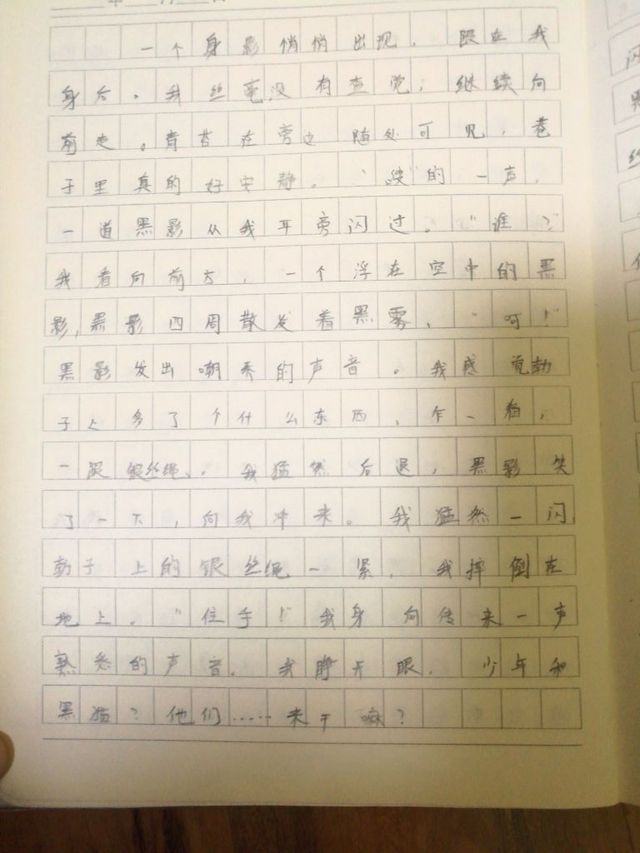 年 月 日
一个身影悄悄出现，跟在我
身后。我丝毫没有查觉，继续向
前走。青苔在旁边随处可见，巷
子里真的好安静。“馊”的一声，
一道黑影从我耳旁闪过。“谁？”
我看向前方，一个浮在空中的黑
影，黑影四周散发着黑雾，“呵！”
黑影发出嘲秀的声音。我感觉勃
子上多了个什么东西，乍一看，
一跟银丝绳，我猛然后退，黑影笑
了一下，向我冲来。我猛然一闪，
勃子上的银丝绳一紧，我摔倒在
地上。“住手！”我身向传来一声
熟悉的声音，我睁开眼，少年和
黑猫？他们……来干嘛？